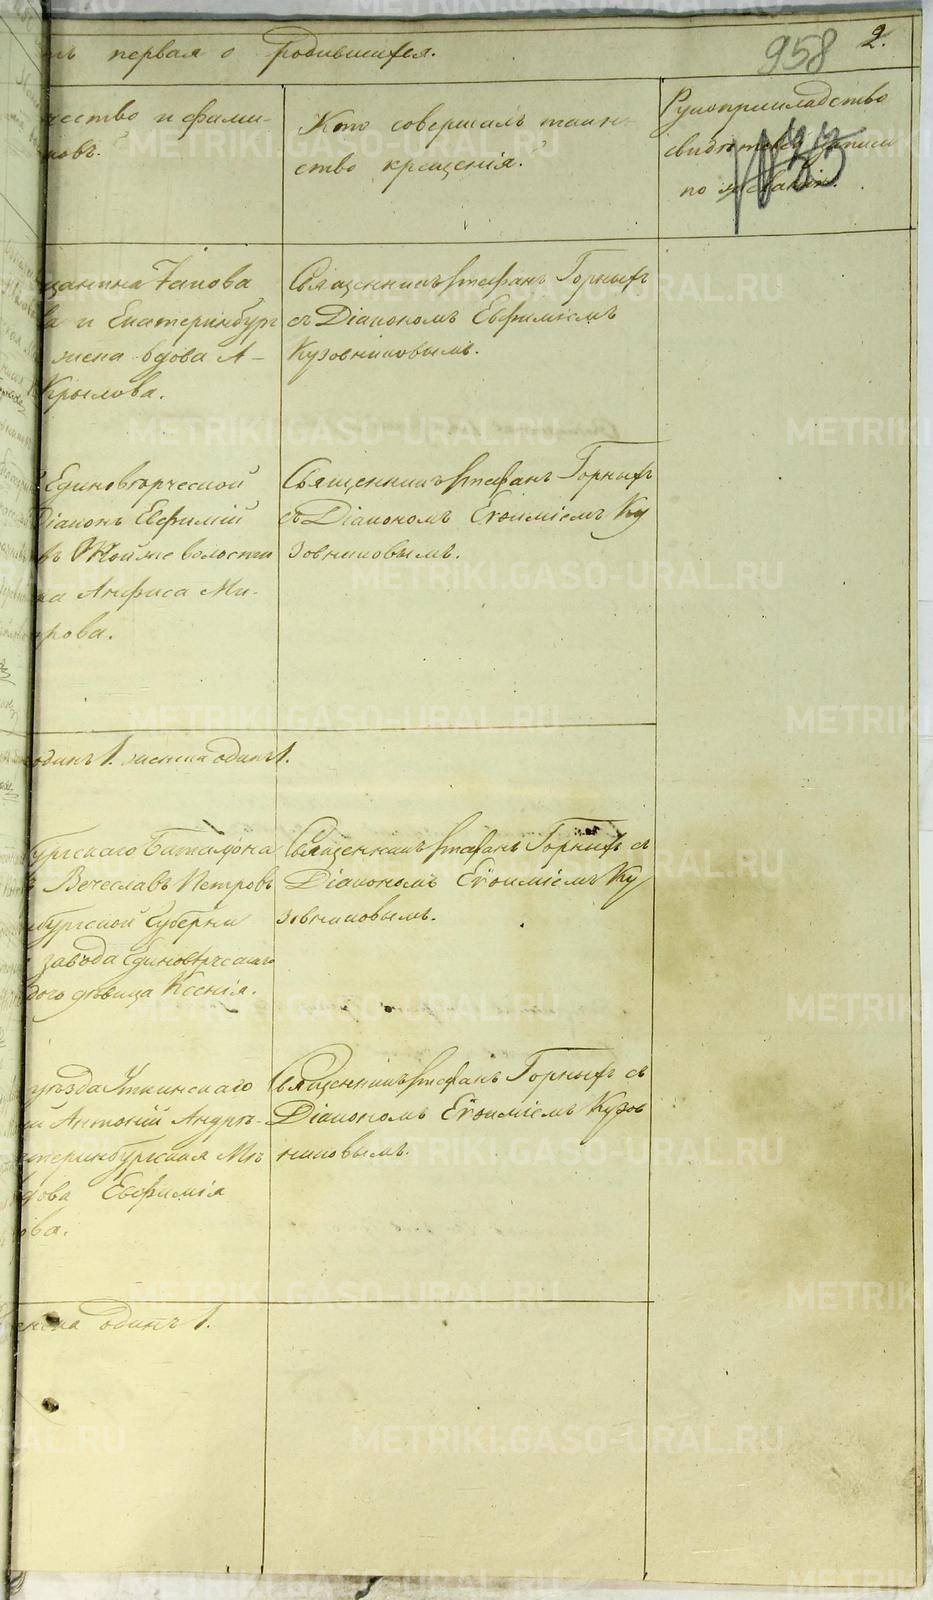 ть первая о родившихся.
958
2.
чество и фами-
Кто совершалъ таин-
ство крещенія.
Рукоприкладство
свидѣтелей записи
по желанію.
№33
щанина
ва и Екатеринбург
жена вдова А-
Крылова.
Священникъ Стефанъ Горныхъ
съ Діакономъ Евфиміемъ
Кузовниковымъ.
Единовѣрческой
Діаконъ Евфимій
въ Той же волости
на Анфиса Ми-
рова.
Священникъ Стефанъ Горныхъ
съ Діакономъ Евѳиміемъ Ку
зовниковымъ.
одинъ 1. женска одинъ 1.
бургскаго Баталіона
Вечеславъ Петровъ
нбургской Губерніи
завода Единовѣрческаго
дѣвица Ксенія.
Священникъ Стефанъ Горныхъ съ
Діакономъ Евѳиміемъ Ку
зовниковымъ.
уѣзда Уткинскаго
Антоній Андрѣ-
атеринбургская Мѣ
дова Евфимія
ова.
Священникъ Стефанъ Горныхъ съ
Діакономъ Евѳиміемъ Кузов
никовымъ.
женска одинъ 1.
METRIKI.GASO-URAL.RU